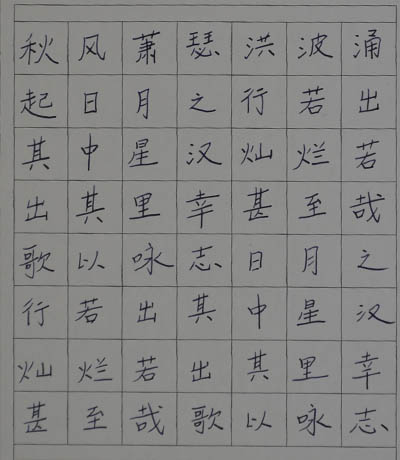 秋风萧瑟洪波涌
起日月之行若出
其中星汉灿烂若
出其里幸甚至哉
歌以咏志日月之
行若出其中星汉
灿烂若出其里幸
甚至哉歌以咏志